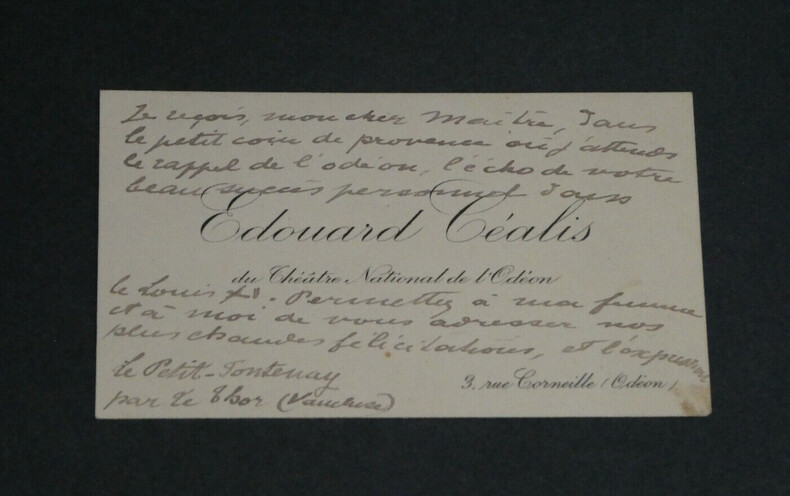 Je reçois, mon cher Maître, dans
le petit coin de provence où j'attends
le rappel de l'odéon, l'écho de votre
beau succès personnel dans
Edouard Céalis
du Théâtre National de l'Odéon
le Louis XI. Permettez à ma femme
et à moi de vous adresser nos
plus chaudes félicitations, et l'expression
le Petit-Fontenay
3, rue Corneille (Odéon)
par Le Thor (Vaucluse)